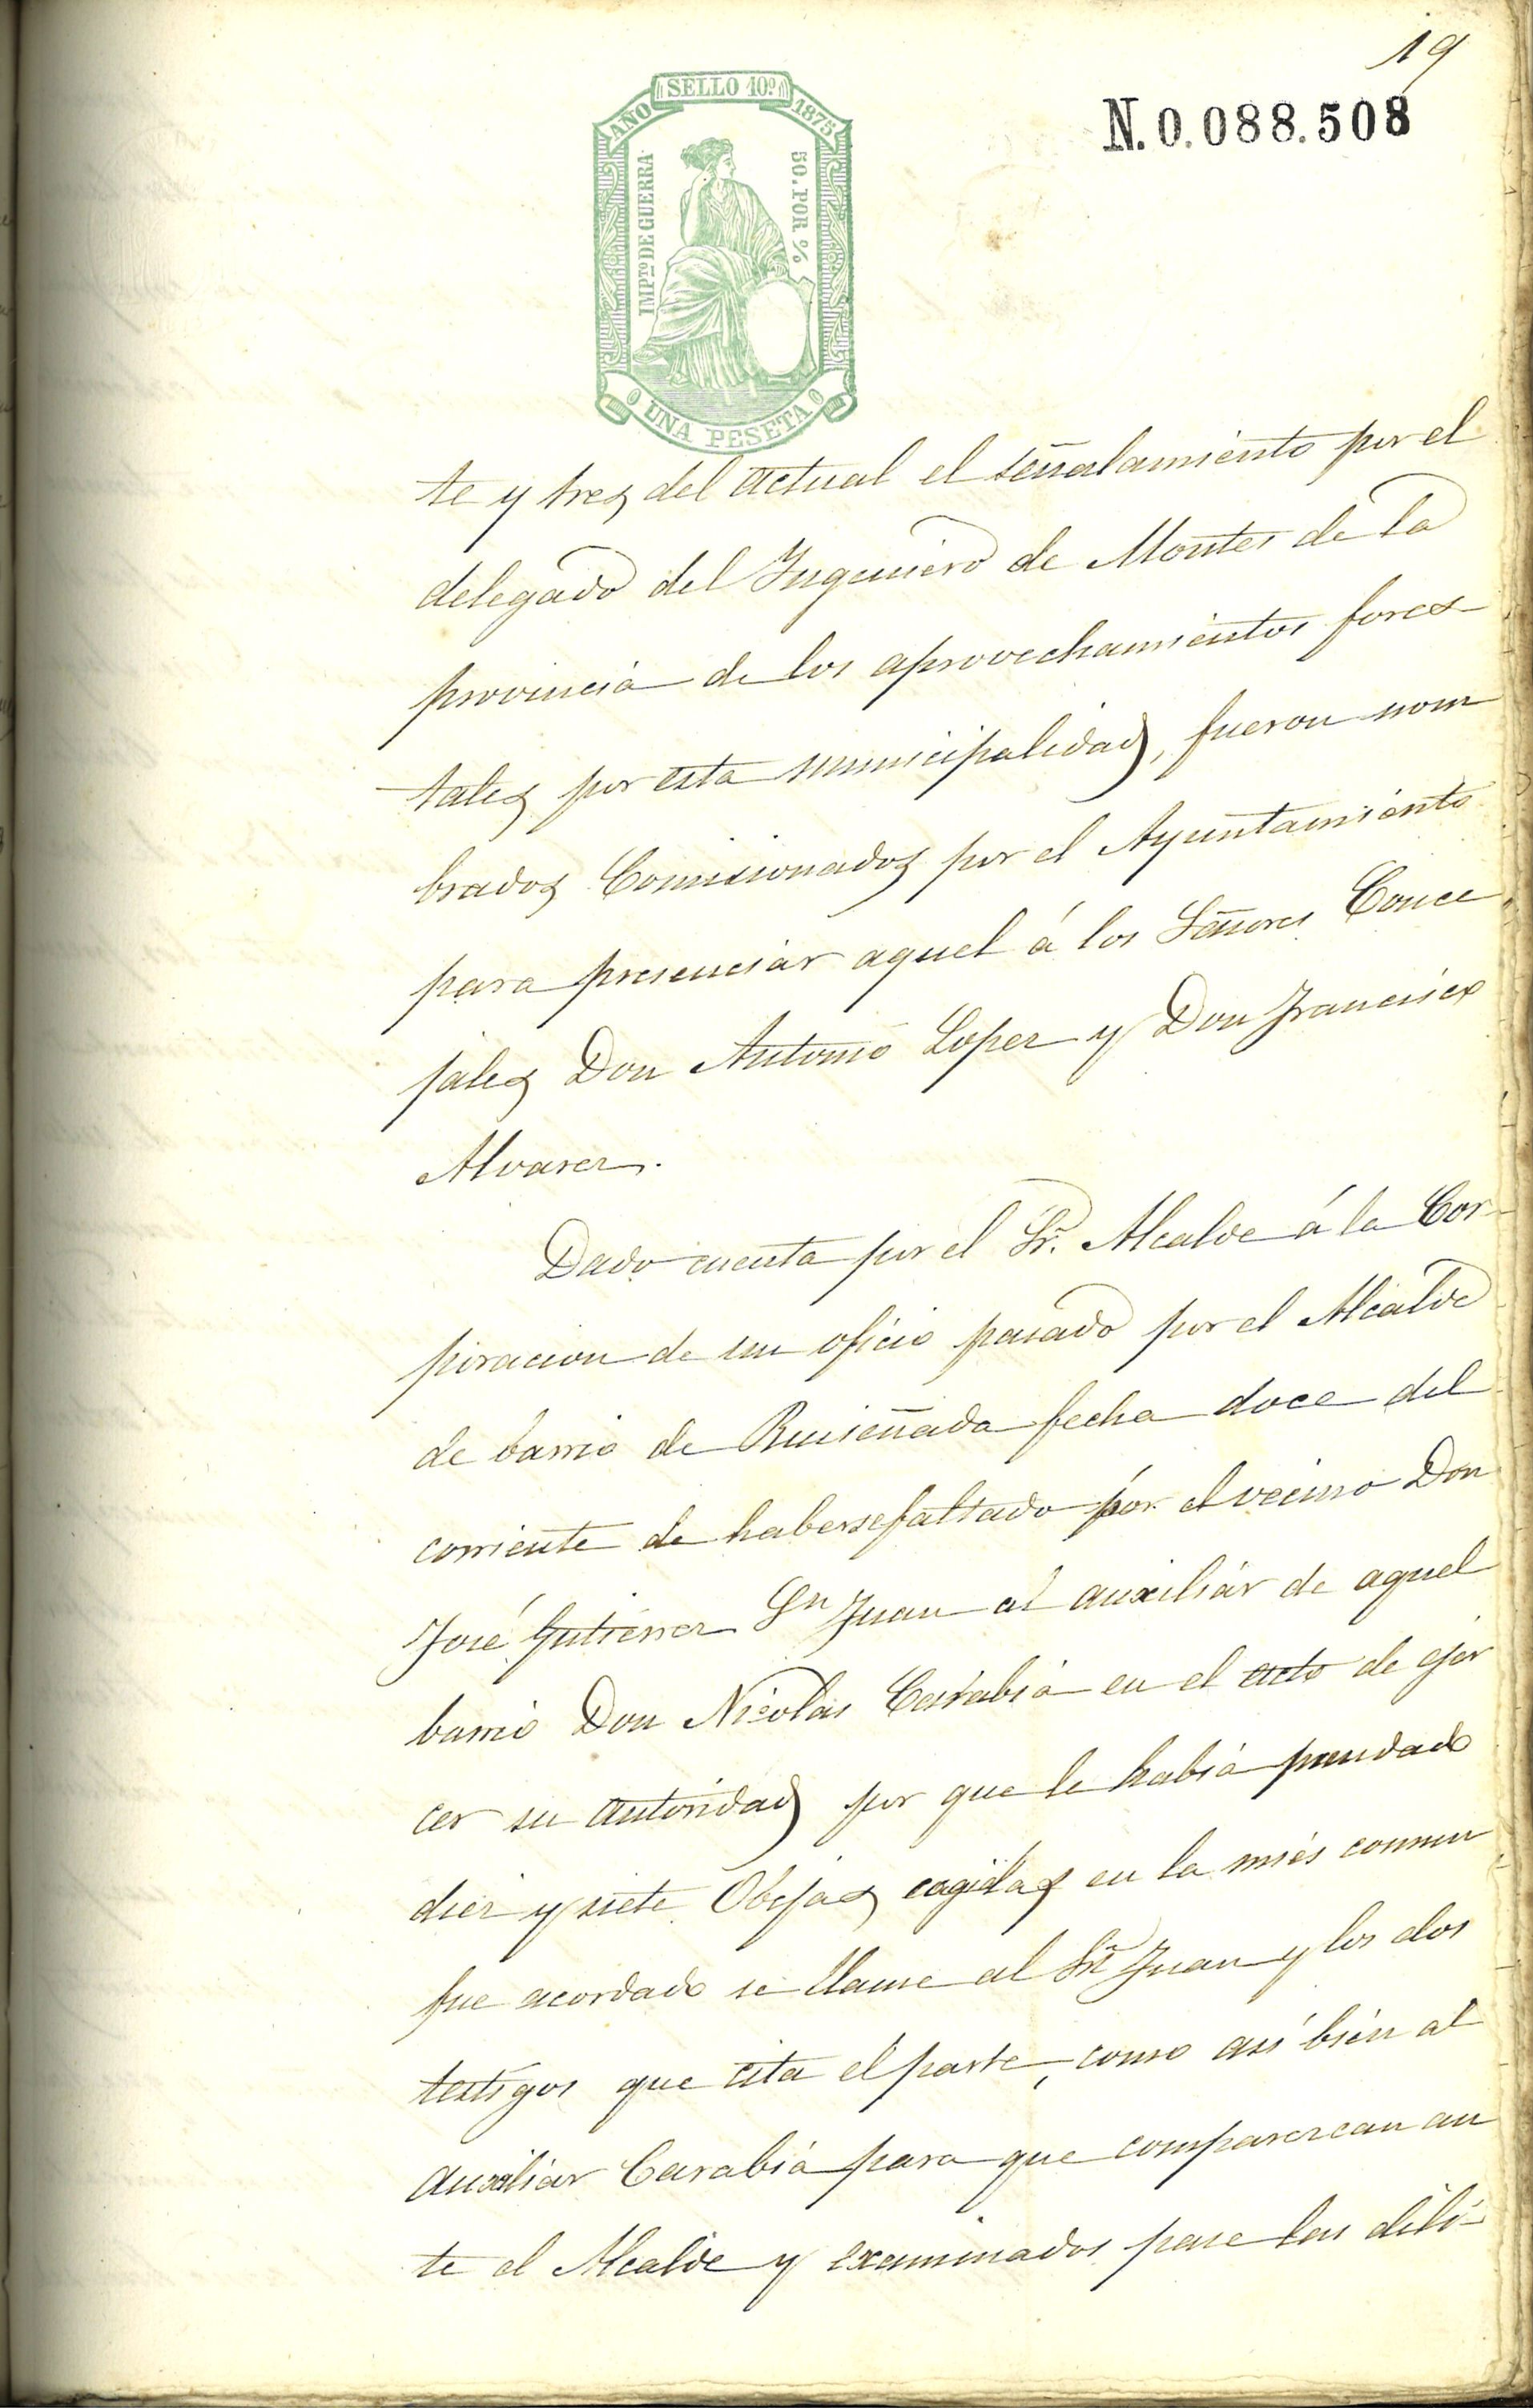 19
N.0.088.508
AÑO SELLO 10º 1875
IMPTO DE GUERRA
50. POR %
UNA PESETA
te y tres del actual el señalamiento por el
delegado del Yngeniero de Montes de la
provincia de los aprovechamientos fores-
tales por esta municipalidad, fueron nom
brados Comisionados por el Ayuntamiento
para presenciar aquel á los Señores Conce
jales Don Antonio Lopez y Don Francisco
Alvarez.
Dado cuenta por el Sr. Alcalde á la Cor-
poracion de un oficio pasado por el Alcalde
de barrio de Ruiseñada fecha doce del
corriente de haberse faltado por el vecino Don
José Gutierrez Sn Juan al auxiliar de aquel
barrio Don Nicolás Carabia en el acto de ejer
cer su autoridad por que le habia prendado
diez y siete Obejas cogidas en la miés comun
fue acordado se llame al Sn Juan y los dos
testigos que cita el parte, como asi bien al
auxiliar Carabia para que comparezcan an
te el Alcalde y examinados pase las dili-